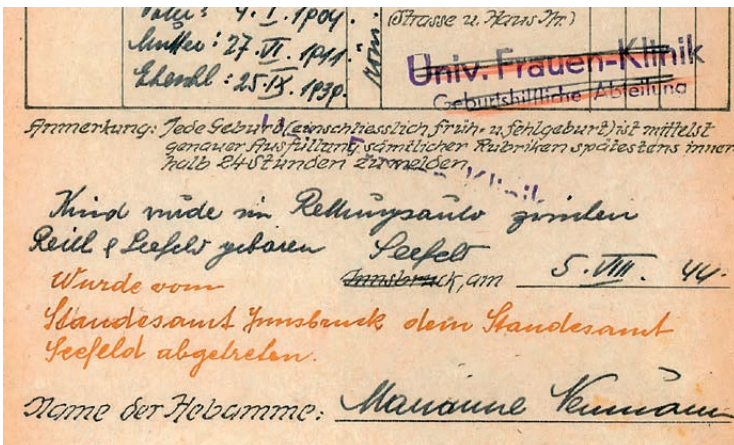 Vater: 4. I. 1904.
(Strasse u. Haus Nr.)
Mutter: 27. VI. 1911.
Eheschl: 25. IX. 1939.
Univ. Frauen-Klinik
Geburtshilfliche Abteilung
Anmerkung: Jede Geburt (einschliesslich früh- u. fehlgeburt) ist mittelst
genauer Ausfüllung sämtlicher Rubriken spätestens inner
halb 24 Stunden zu melden.
Klinik
Kind wude im Rettungsauto zwischen
Reitl & Seefeld geboren Seefeld
Innsbruck, am 5. VIII. 44.
Wurde vom
Standesamt Innsbruck dem Standesamt
Seefeld abgetreten.
Name der Hebamme: Marianne Neumann